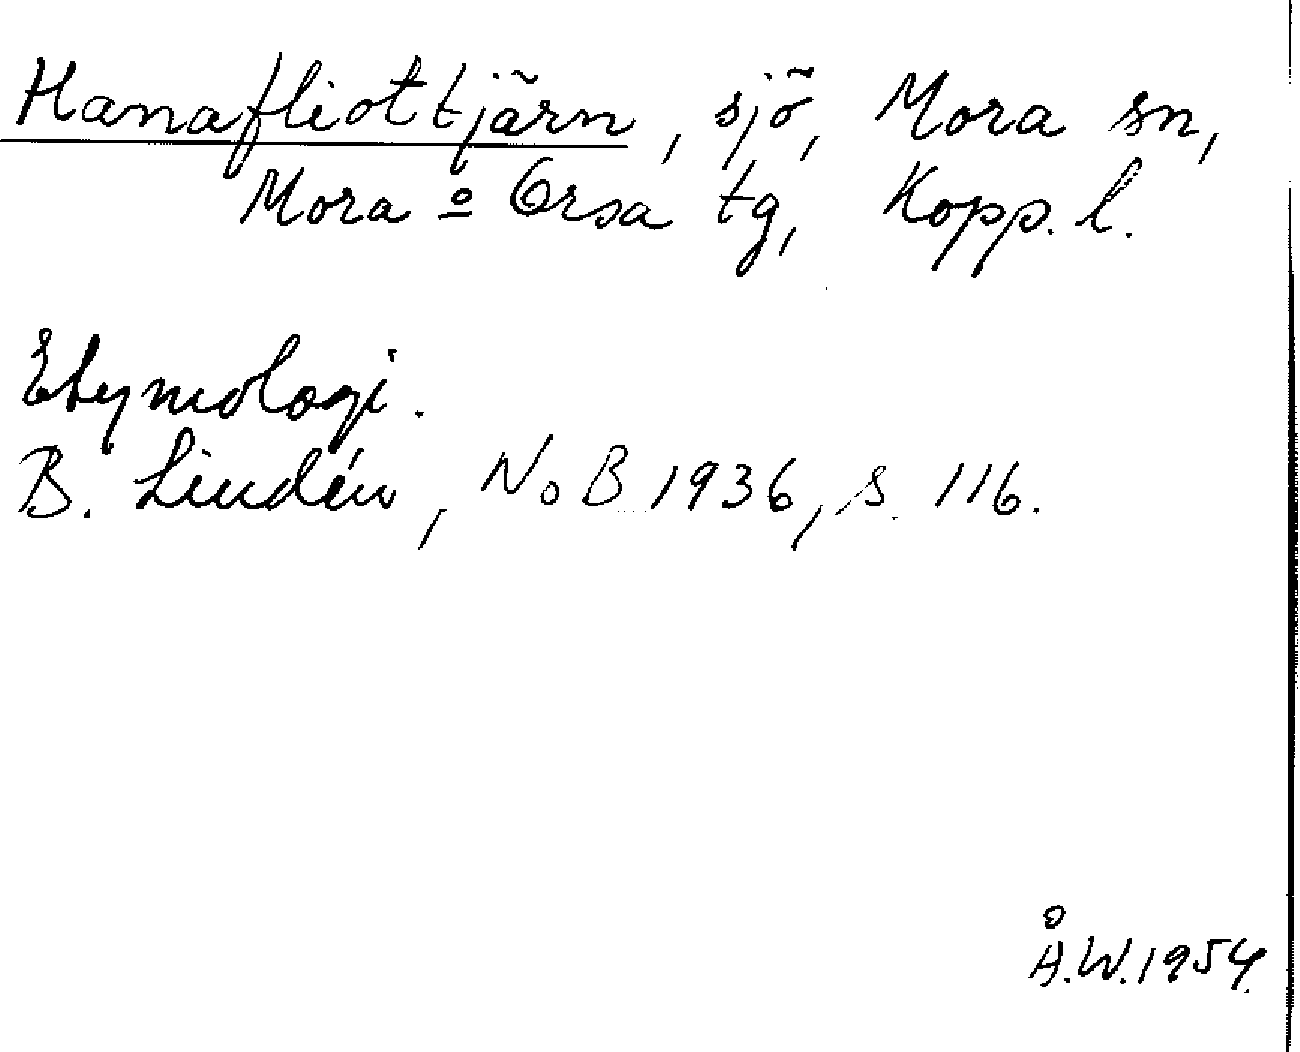 Hanafliottjärn, sjö, Mora sn,
Mora o Orsa tg, Kopp. l.
Etymologi.
B. Lindén, NoB 1936, s. 116.
Å.W. 1954.